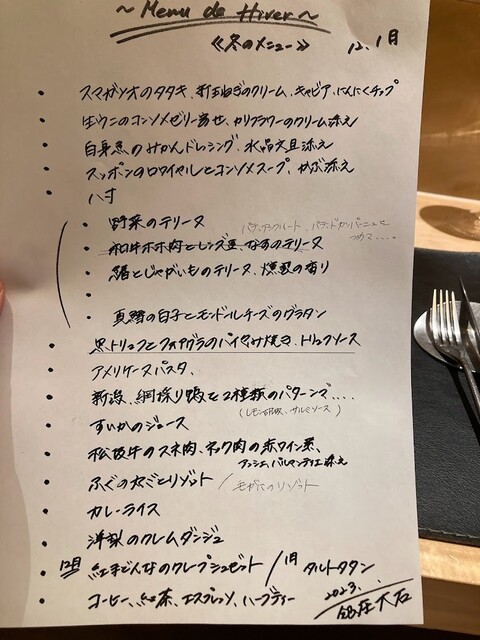 ~ Menu de Hiver ~
≪冬のメニュー≫ 12、1月
・スマガツオのタタキ、新玉ねぎのクリーム、キャビア、にんにくチップ
・生ウニのコンソメゼリー寄せ、カリフラワーのクリーム添え
・白身魚のみかんドレッシング、水晶文旦添え
・スッポンのロワイヤルとコンソメスープ、かぶ添え
・八寸
・野菜のテリーヌ パテアンクルート、パテドカンパーニュに
つめて....
・和牛ホホ肉とレンズ豆、なすのテリーヌ
・鰯とじゃがいものテリーヌ、燻製の香り
・
・真鱈の白子とモンドールチーズのグラタン
・黒トリュフとフォアグラのパイ包み焼き、トリュフソース
・アメリケーヌパスタ、
・新潟、網採り鴨を2種類のパターンで....
(レモン胡椒、サルミソース)
・すいかのジュース
・松阪牛のスネ肉、ネック肉の赤ワイン煮、
アッシェパルマンティエ添え
・ふぐの丸ごとリゾット / 毛がにのリゾット
・カレーライス
・洋梨のクレムダンジュ
・12月 紅まどんなのクレープシュゼット / 1月 タルトタタン
・コーヒー、紅茶、エスプレッソ、ハーブティー
2023.
銀座大石